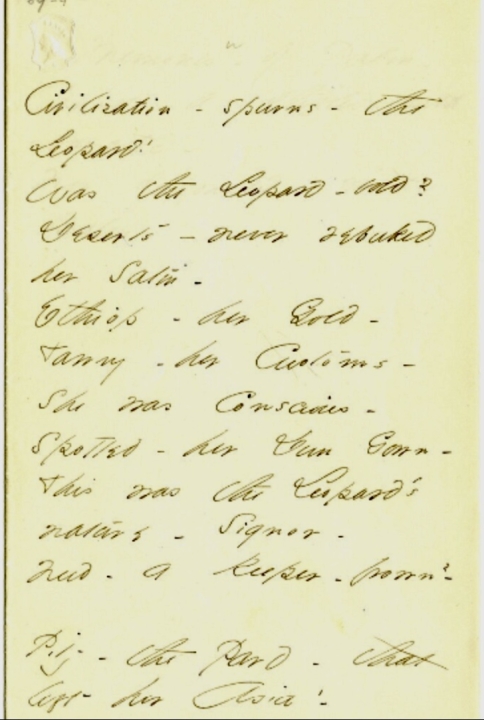 Civilization - spurns - the
Leopard!
Was the Leopard - bold?
Deserts - never rebuked
her Satin -
Ethiop - her Gold -
Tawny - her Customs -
She was Conscious -
Spotted - her Dun Gown -
This was the Leopard's
nature - Signor -
Need - a keeper - frown?

Pity - the Pard - that
left her Asia! -